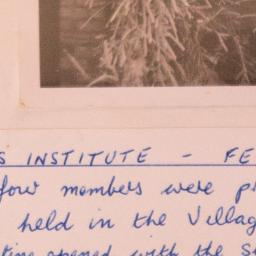 S INSTITUTE - FE
few members were p
held in the Villag
opened with the S